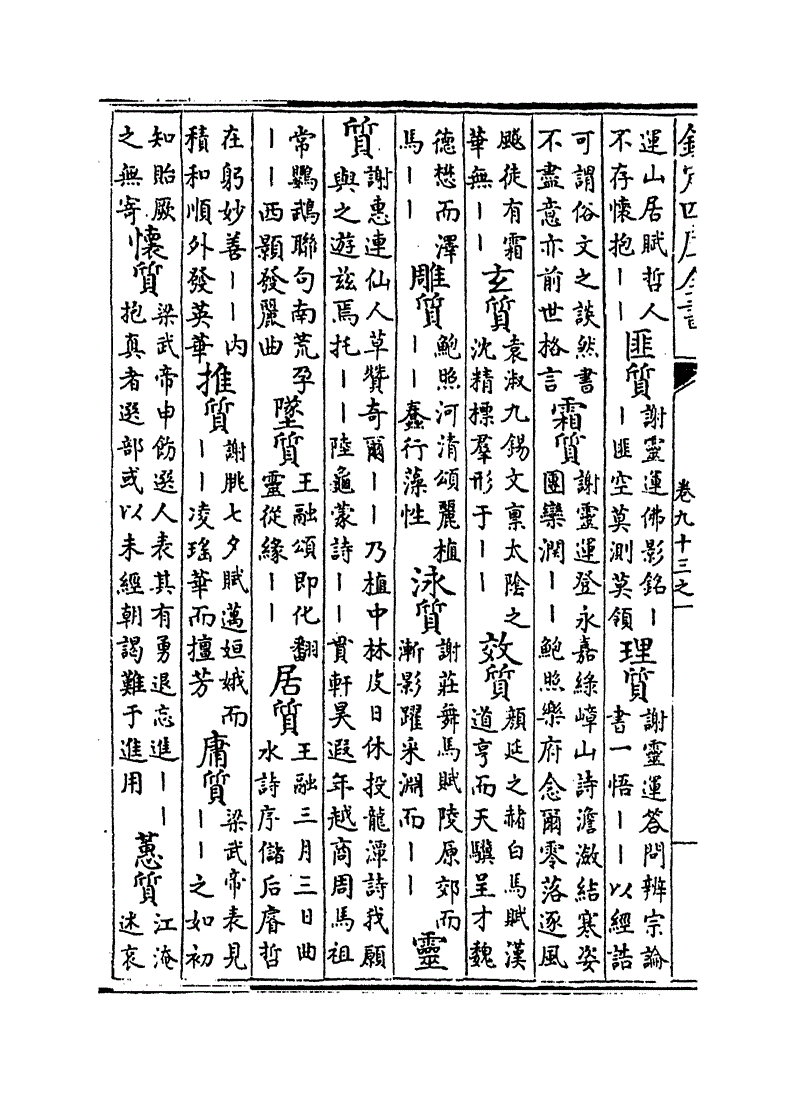 欽定四庫全書 卷九十三之一
運山居賦哲人不存懷抱丨丨匪質謝靈運佛影銘丨丨匪空莫測莫領理質謝靈運答問辨宗論書一悟丨丨以經誥
可謂俗文之談然書不盡意亦前世格言霜質謝靈運登永嘉綠嶂山詩澹瀲結寒姿團欒潤丨丨鮑照樂府念爾零落逐風
飈徒有霜華無丨丨玄質袁淑九錫文禀太陰之沈精標羣形于丨丨效質顏延之赭白馬賦漢道亨而天驥呈才魏
德懋而澤馬丨丨雕質鮑照河清頌麗植丨丨蠢行藻性泳質謝莊舞馬賦陵原郊而漸影躍采淵而丨丨靈
質謝惠連仙人草贊奇爾丨丨乃植中林皮日休投龍潭詩我願與之遊茲焉托丨丨陸龜蒙詩丨丨貫軒昊遐年越商周馬祖
常鸚鵡聯句南荒孕丨丨西顥發麗曲墜質王融頌即化翻靈從緣丨丨居質王融三月三日曲水詩序儲后睿哲
在躬妙善丨丨内積和順外發英華推質謝朓七夕賦邁姮娥而丨丨凌瑤華而擅芳庸質梁武帝表見丨丨之如初
知貽厥之無寄懷質梁武帝申飭選人表其有勇退忘進丨丨抱真者選部或以未經朝謁難于進用蕙質江淹述哀